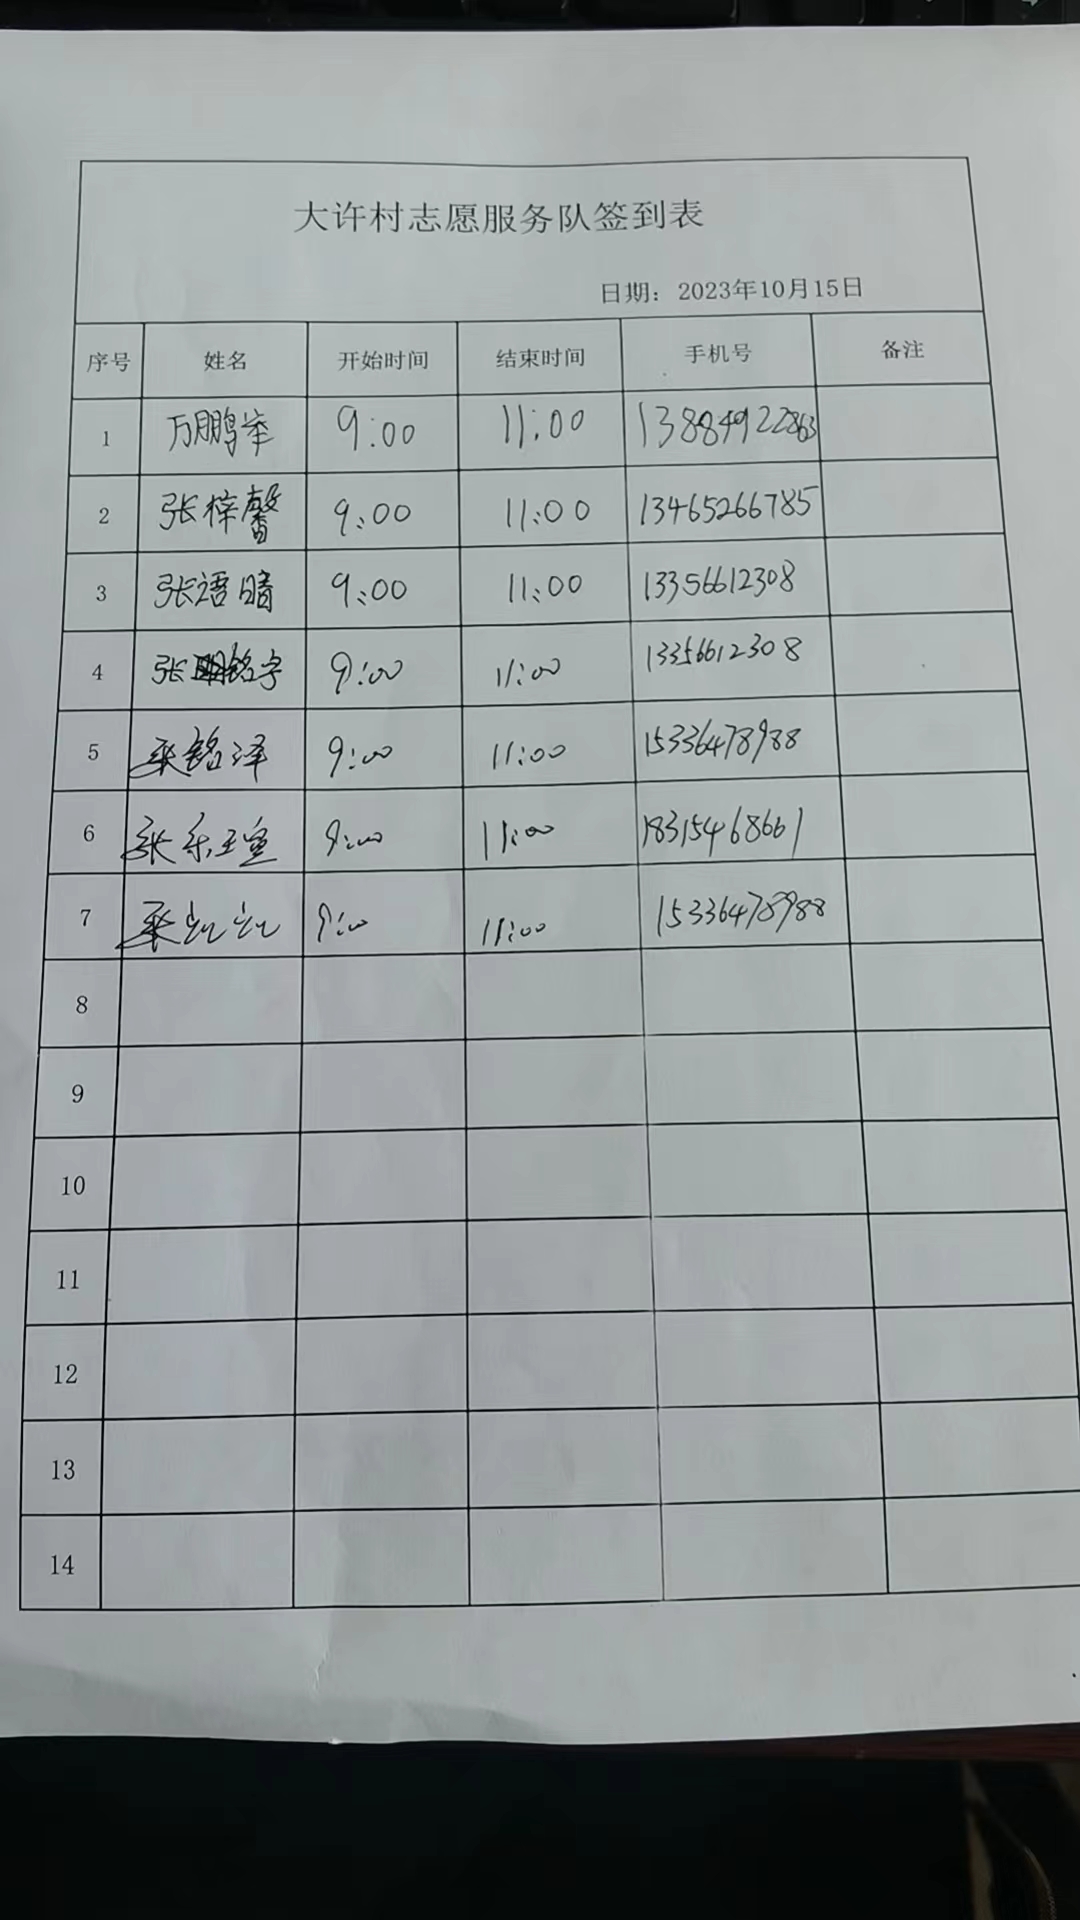 大许村志愿服务队签到表
日期：2023年10月15日
序号 姓名 开始时间 结束时间 手机号 备注
1 万鹏举 9:00 11:00 13884922863
2 张梓馨 9:00 11:00 13465266785
3 张语晴 9:00 11:00 13356612308
4 张铭宇 9:00 11:00 13356612308
5 张铭泽 9:00 11:00 15336478988
6 张乐瑄 9:00 11:00 18315468661
7 9:00 11:00 15336478988
8
9
10
11
12
13
14